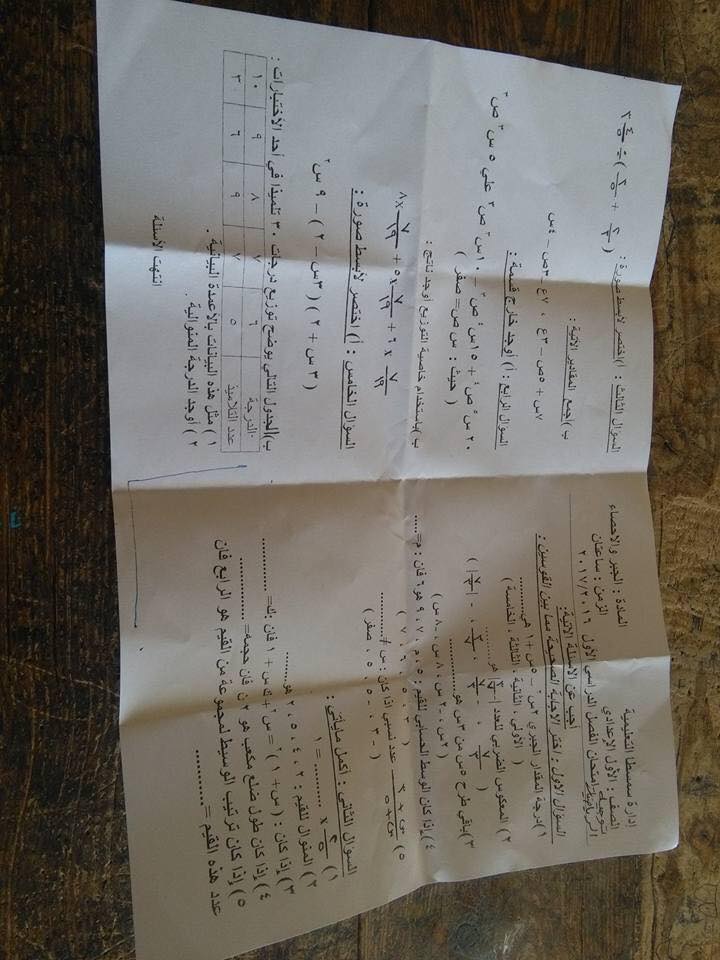 إدارة سمسطا التعليمية
الصف : الأول الإعدادي
المادة : الجبر والاحصاء
الزمن : ساعتان
امتحان الفصل الدراسي الأول ٢٠١٧/٢٠١٦
أجب عن الاسئلة الاتية:
السؤال الاول : اختر الاجابة الصحيحة مما بين القوسين :
١) درجة المقدار الجبري ٢س٢ + ٥س + ١ هي..........
( الاولى ، الثانية ، الثالثة ، الخامسة )
٢) المعكوس الضربي للعدد
هو..........
٣) باقي طرح ٥س من ٣س هو..........
( ٢س ، -٢س ، ٨س ، -٨س )
٤) إذا كان الوسط الحسابي للقيم : ٥ ، م ، ٧ ، ٩ هو ٦ فان : م=.....
( ٣ ، ٥ ، ٦ ، ٧ )
عدد نسبي اذا كان : س ≠ ......
( -٣ ، -٥ ، ٥ ، صفر )
السؤال الثاني : أكمل ماياتي :
١) ٣/٥ × .......... = ١
٢) المنوال للقيم : ٢ ، ٤ ، ٥ ، ٢ هو..........
٣) إذا كان : ( س + ١ )٢ = س٢ + ك س + ١ فان : ك= ..........
٤) إذا كان طول ضلع مكعب هو ٢ن فان حجمه= ..........
٥) إذا كان ترتيب الوسيط لمجموعة من القيم هو الرابع فان
عدد هذه القيم = ..........
السؤال الثالث : أ) اختصر لأبسط صورة :
ب) أجمع المقادير الاتية :
٧س + ٥ص - ٣ع ، ٧ع - ٣ص - ٤س
السؤال الرابع : أ) أوجد خارج قسمة :
( حيث : س ص ≠ صفر )
ب) باستخدام خاصية التوزيع أوجد ناتج :
٧/١٩ × ٦ + ٧/١٩ × ٥ + ٧/١٩ × ٨
السؤال الخامس : أ) اختصر لأبسط صورة :
( ٣س + ٢ ) ( ٣س - ٢ ) - ٩س٢
ب) الجدول التالي يوضح توزيع درجات ٣٠ تلميذا في أحد الأختبارات :
الدرجة ٦ ٧ ٨ ٩ ١٠
عدد التلاميذ ٥ ٧ ٩ ٦ ٣
١) مثل هذه البيانات بالاعمدة البيانية .
٢) أوجد الدرجة المنوالية .
انتهت الأسئلة